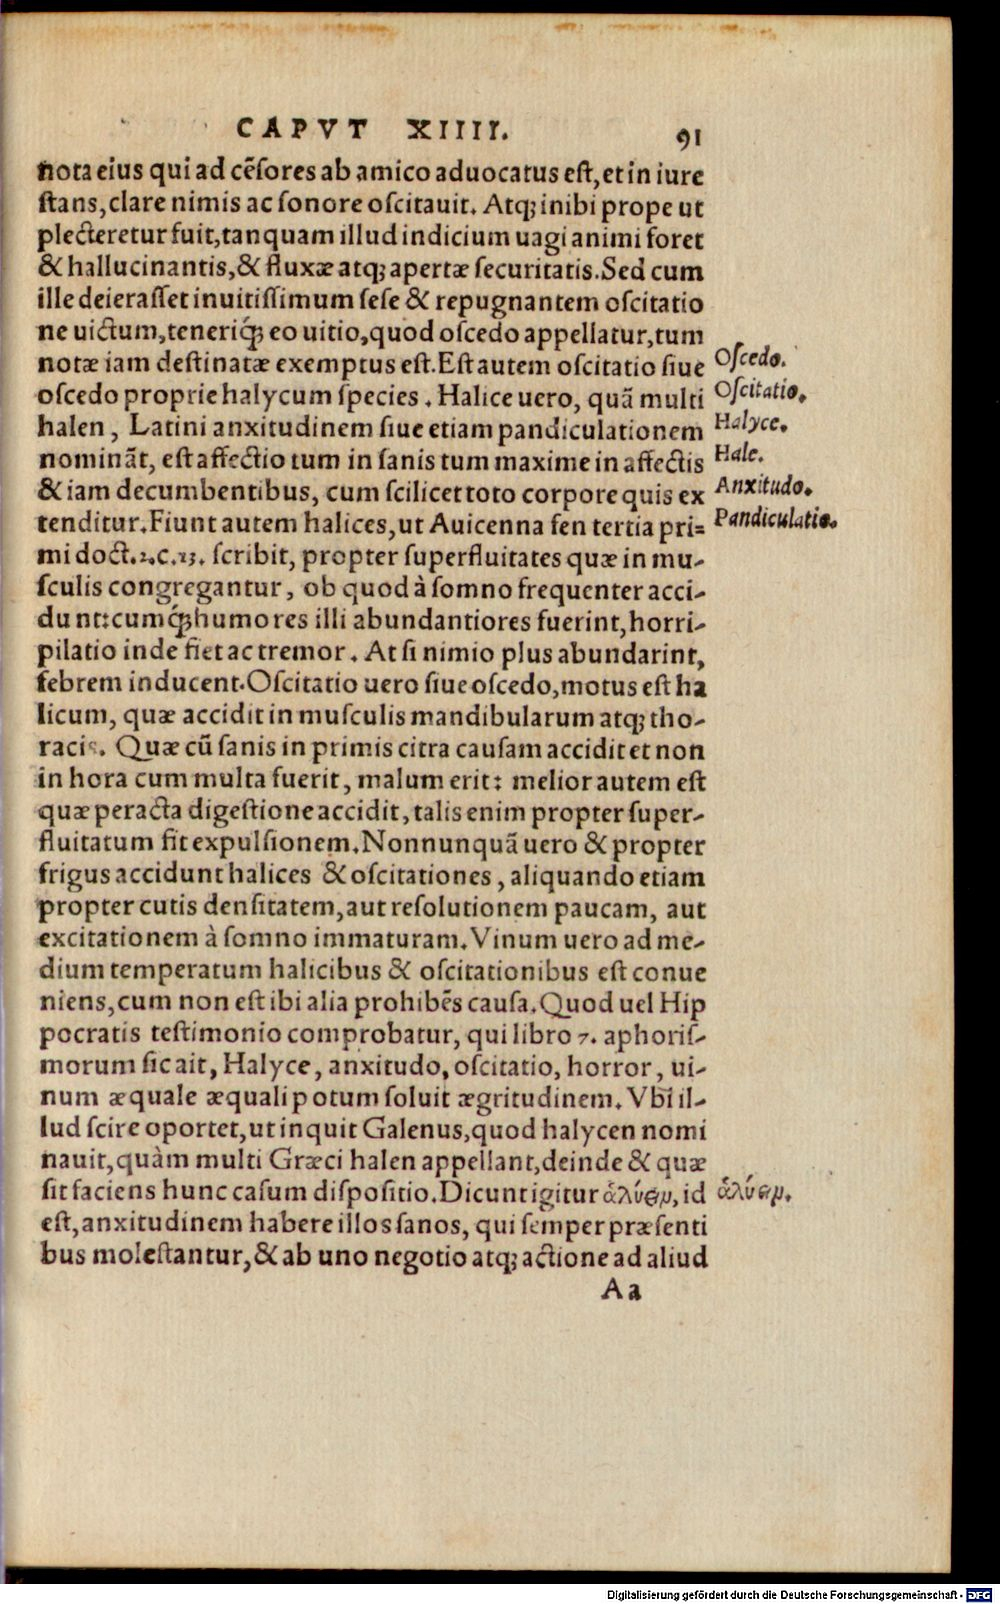 CAPVT XIIII. 91
nota eius qui ad cēsores ab amico aduocatus est, et in iure
stans, clare nimis ac sonore oscitauit. Atq; inibi prope ut
plecteretur fuit, tanquam illud indicium uagi animi foret
& hallucinantis, & fluxæ atq; apertæ securitatis. Sed cum
ille deierasset inuitissimum sese & repugnantem oscitatio
ne uictum, teneriq́; eo uitio, quod oscedo appellatur, tum
notæ iam destinatæ exemptus est. Est autem oscitatio siue
Oscedo.
oscedo proprie halycum species. Halice uero, quā multi
Oscitatio.
halen, Latini anxitudinem siue etiam pandiculationem
Halyce.
nomināt, est affectio tum in sanis tum maxime in affectis
Hale.
& iam decumbentibus, cum scilicet toto corpore quis ex
Anxitudo.
tenditur. Fiunt autem halices, ut Auicenna fen tertia pri=
Pandiculatio.
mi doct. 2. c. 13. scribit, propter superfluitates quæ in mu-
sculis congregantur, ob quod à somno frequenter acci-
dunt: cumq́; humores illi abundantiores fuerint, horri-
pilatio inde fiet ac tremor. At si nimio plus abundarint,
febrem inducent. Oscitatio uero siue oscedo, motus est ha
licum, quæ accidit in musculis mandibularum atq; tho-
racis. Quæ cū sanis in primis citra causam accidit et non
in hora cum multa fuerit, malum erit: melior autem est
quæ peracta digestione accidit, talis enim propter super-
fluitatum fit expulsionem. Nonnunquā uero & propter
frigus accidunt halices & oscitationes, aliquando etiam
propter cutis densitatem, aut resolutionem paucam, aut
excitationem à somno immaturam. Vinum uero ad me-
dium temperatum halicibus & oscitationibus est conue
niens, cum non est ibi alia prohibēs causa. Quod uel Hip
pocratis testimonio comprobatur, qui libro 7. aphoris-
morum sic ait, Halyce, anxitudo, oscitatio, horror, ui-
num æquale æquali potum soluit ægritudinem. Vbi il-
lud scire oportet, ut inquit Galenus, quod halycen nomi
nauit, quàm multi Græci halen appellant, deinde & quæ
sit faciens hunc casum dispositio. Dicunt igitur ἁλύειν, id
ἁλύειν.
est, anxitudinem habere illos sanos, qui semper præsenti
bus molestantur, & ab uno negotio atq; actione ad aliud
Aa
Digitalisierung gefördert durch die Deutsche Forschungsgemeinschaft - DFG